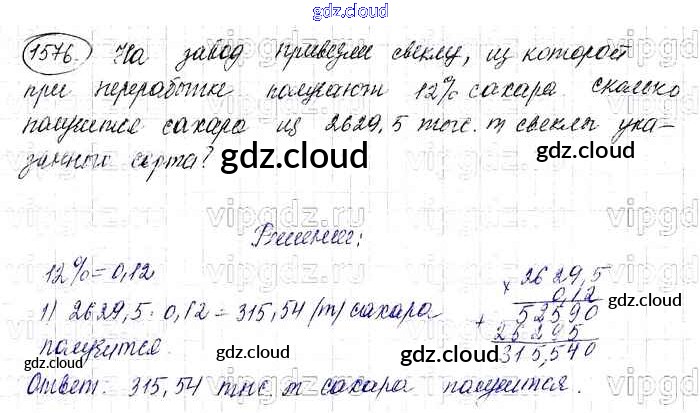 gdz.cloud
1576. На завод привезли свеклу, из которой
при переработке получают 12% сахара. сколько
получится сахара из 2629,5 тыс. т свеклы ука-
занного сорта?
gdz.cloud
Решение:
12% = 0,12
1) 2629,5 · 0,12 = 315,54 (т) сахара
получится.
Ответ: 315,54 тыс. т сахара получится.
× 2629,5
0,12
+ 52590
26295
315,540
gdz.cloud
gdz.cloud
gdz.cloud
gdz.cloud
vipgdz.ru